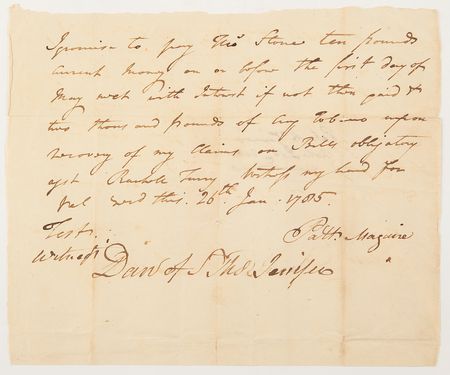 I promise to pay Thos Stone ten pounds
Current Money on or before the first day of
May next with Interest if not then paid &
two thousand pounds of Crop Tobacco upon
recovery of my Claims on Bills obligatory
agst Rachell Furry Witness my hand for
Val recd this 26th Jan 1785.
Test
Witness Patk Maguire
Danl of St Thos Jenifer